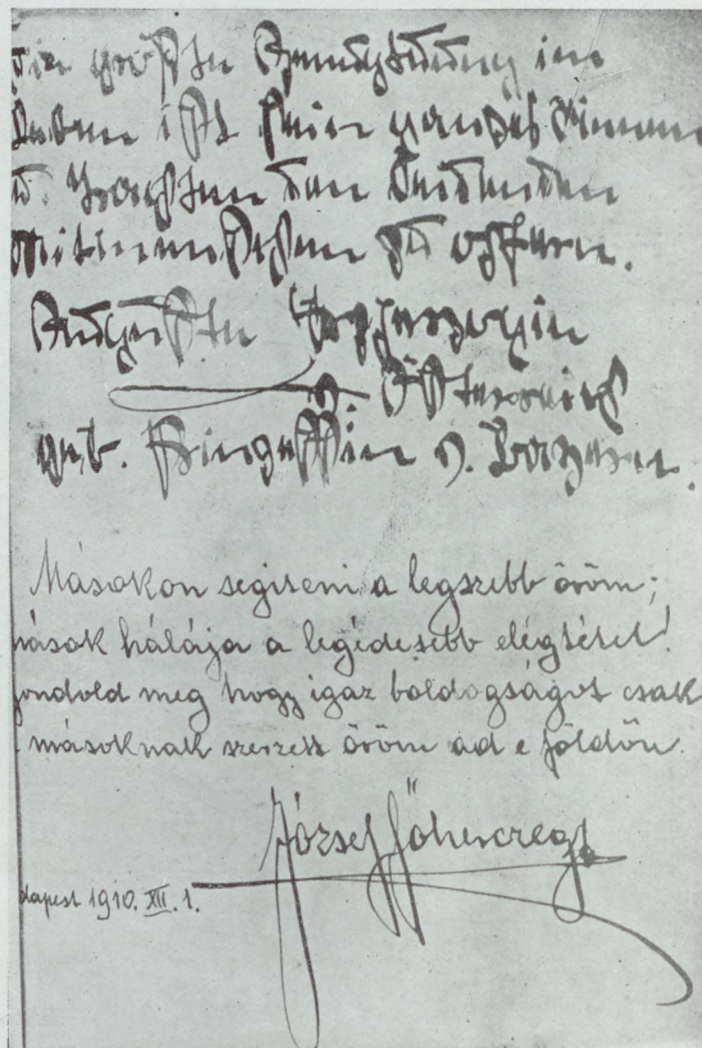 Die größte Genugtuung im
Leben ist sein ganzes Sinnen
u. Trachten den leidenden
Mitmenschen zu opfern.
Auguste Erzherzogin
v. Österreich
geb. Prinzessin v. Bayern.
Másokon segiteni a legszebb öröm;
mások hálája a legédesebb elégtétel!
gondold meg hogy igaz boldogságot csak
másoknak szerzett öröm ad e földön.
József főherczeg
dapest 1910. XII. 1.